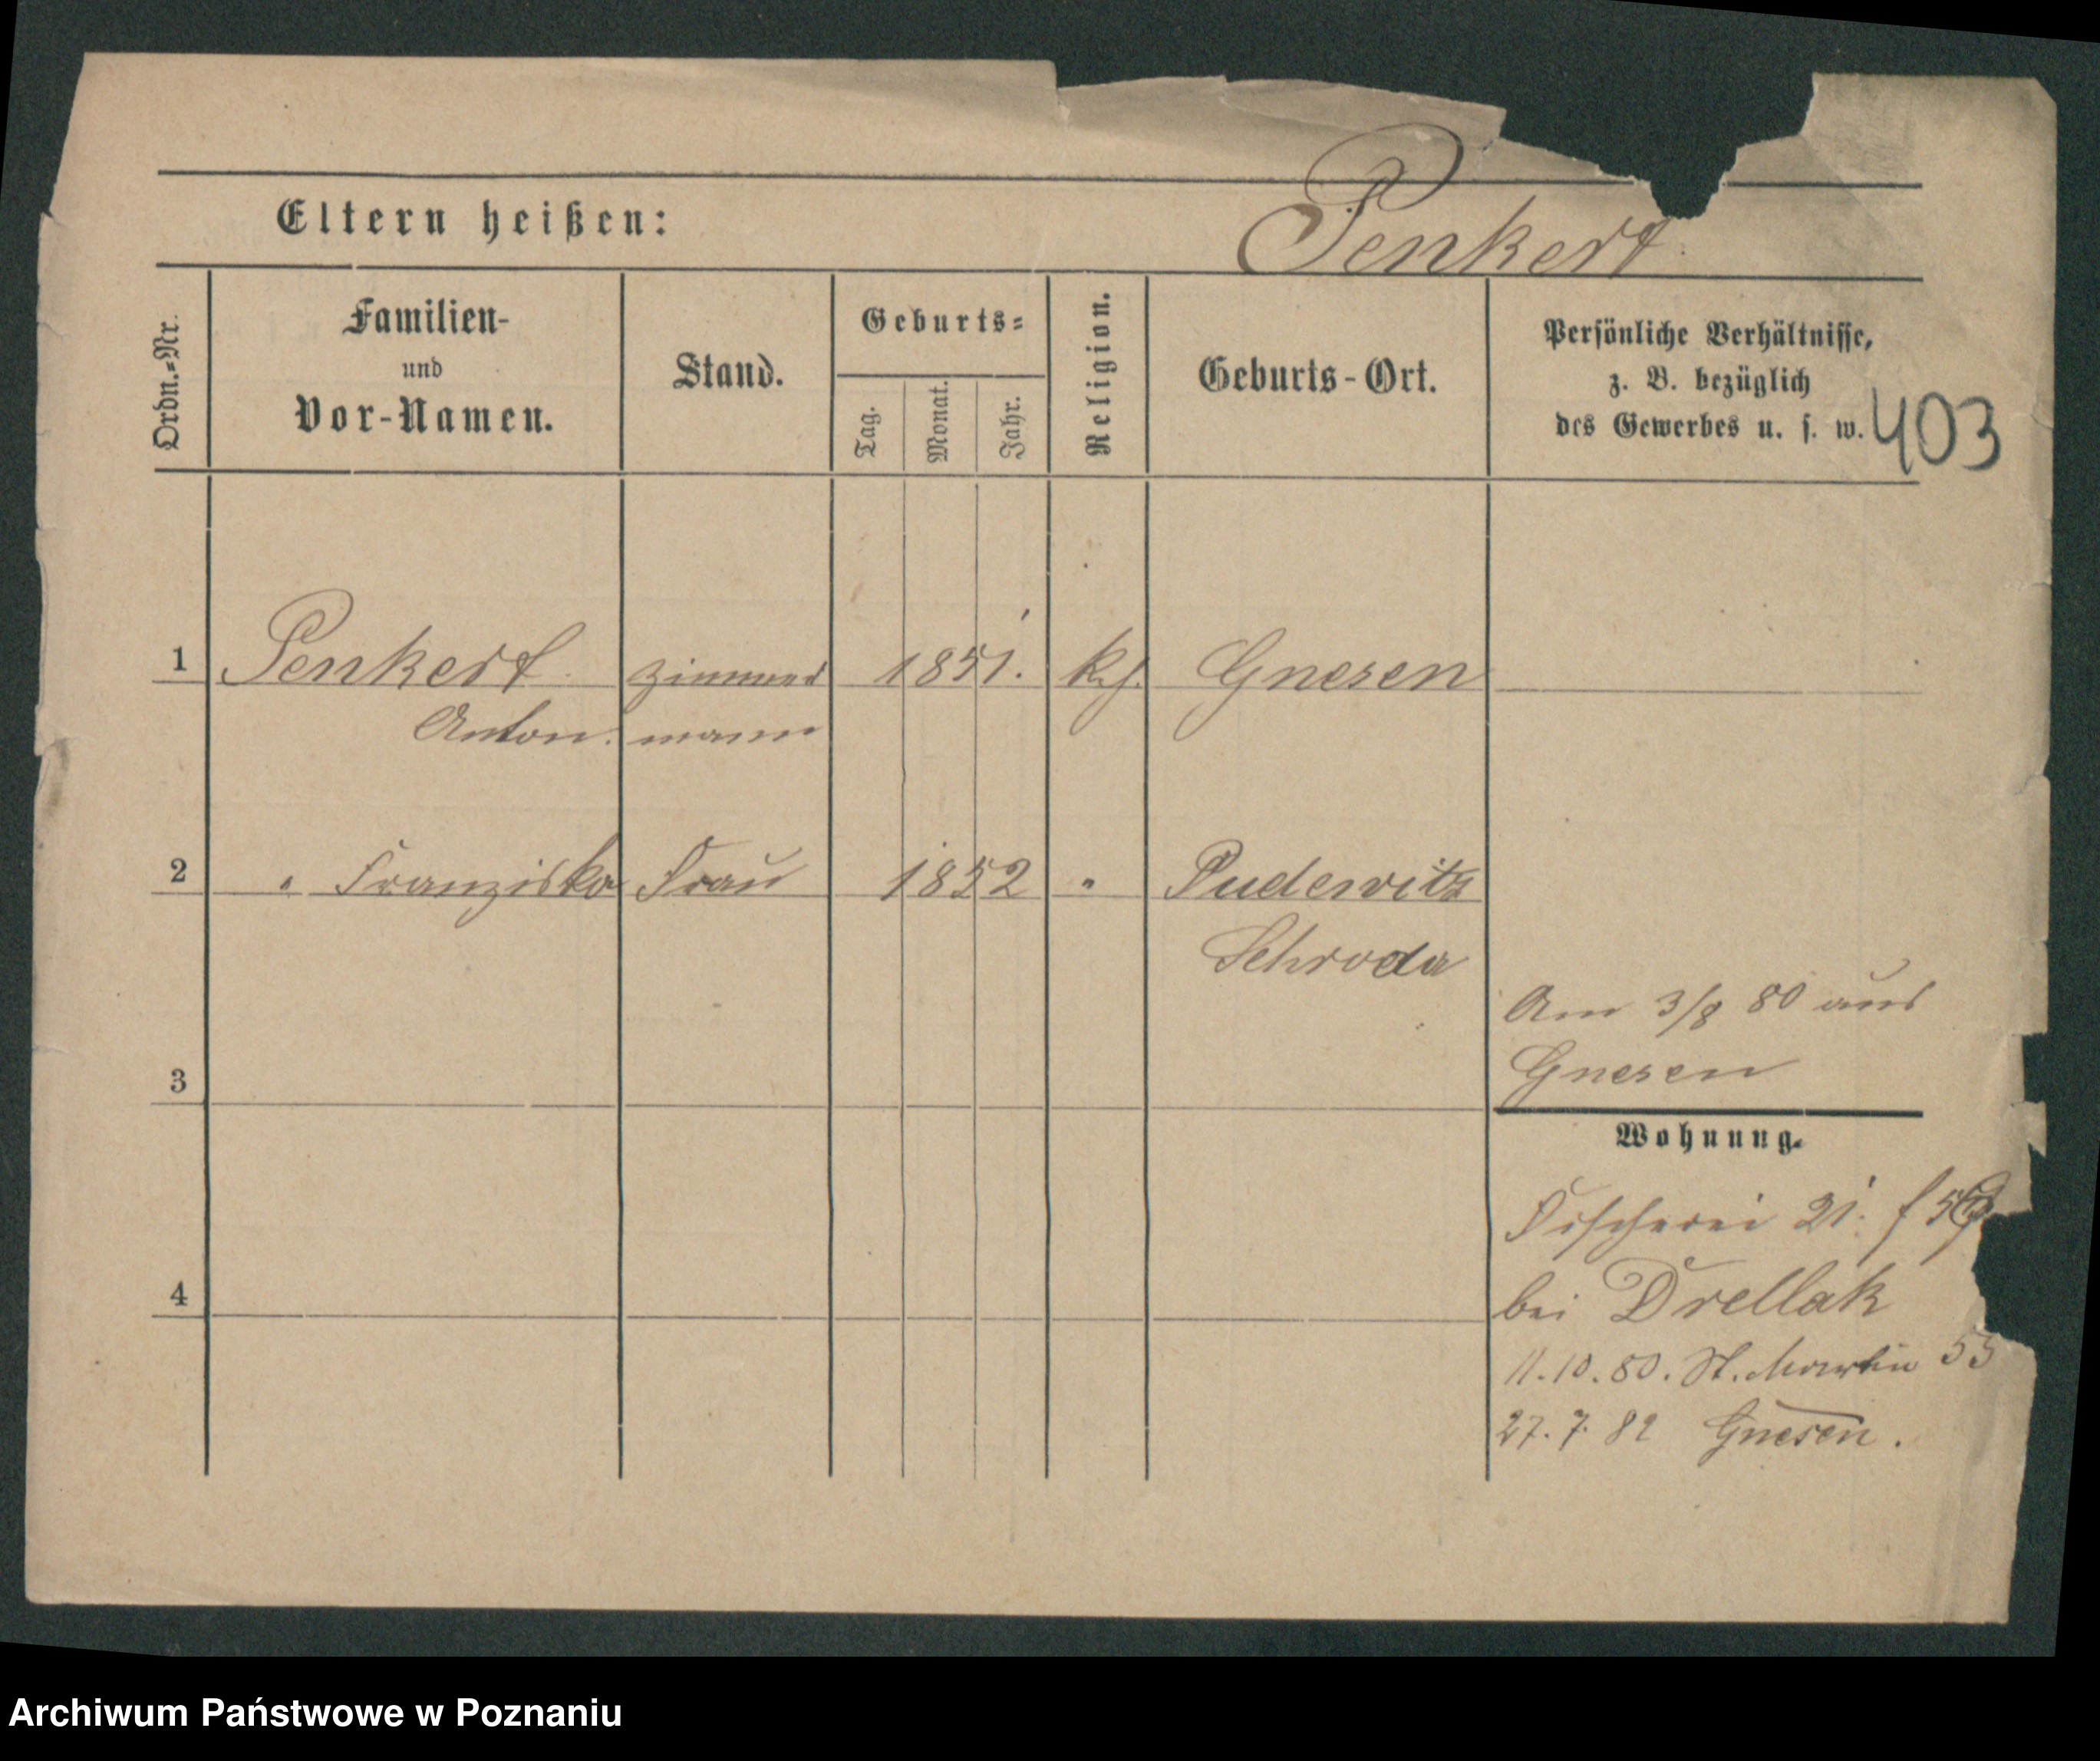 Eltern heißen:
Penkert
Ordn.-Nr.
Familien-
und
Vor-Namen.
Stand.
Geburts-
Tag.
Monat.
Jahr.
Religion.
Geburts-Ort.
Persönliche Verhältnisse,
z. B. bezüglich
des Gewerbes u. s. w.
403
1 Penkert Zimmer 1851. k. Gnesen
Anton. mann
2 " Franziska Frau 1852 " Pudewitz
Schroda
Am 3/8 80 aus
3 Gnesen
Wohnung.
Fischerei 21.
4 bei Drellak
11.10.80. St. Martin 53
27.7.82 Gnesen.
Archiwum Państwowe w Poznaniu